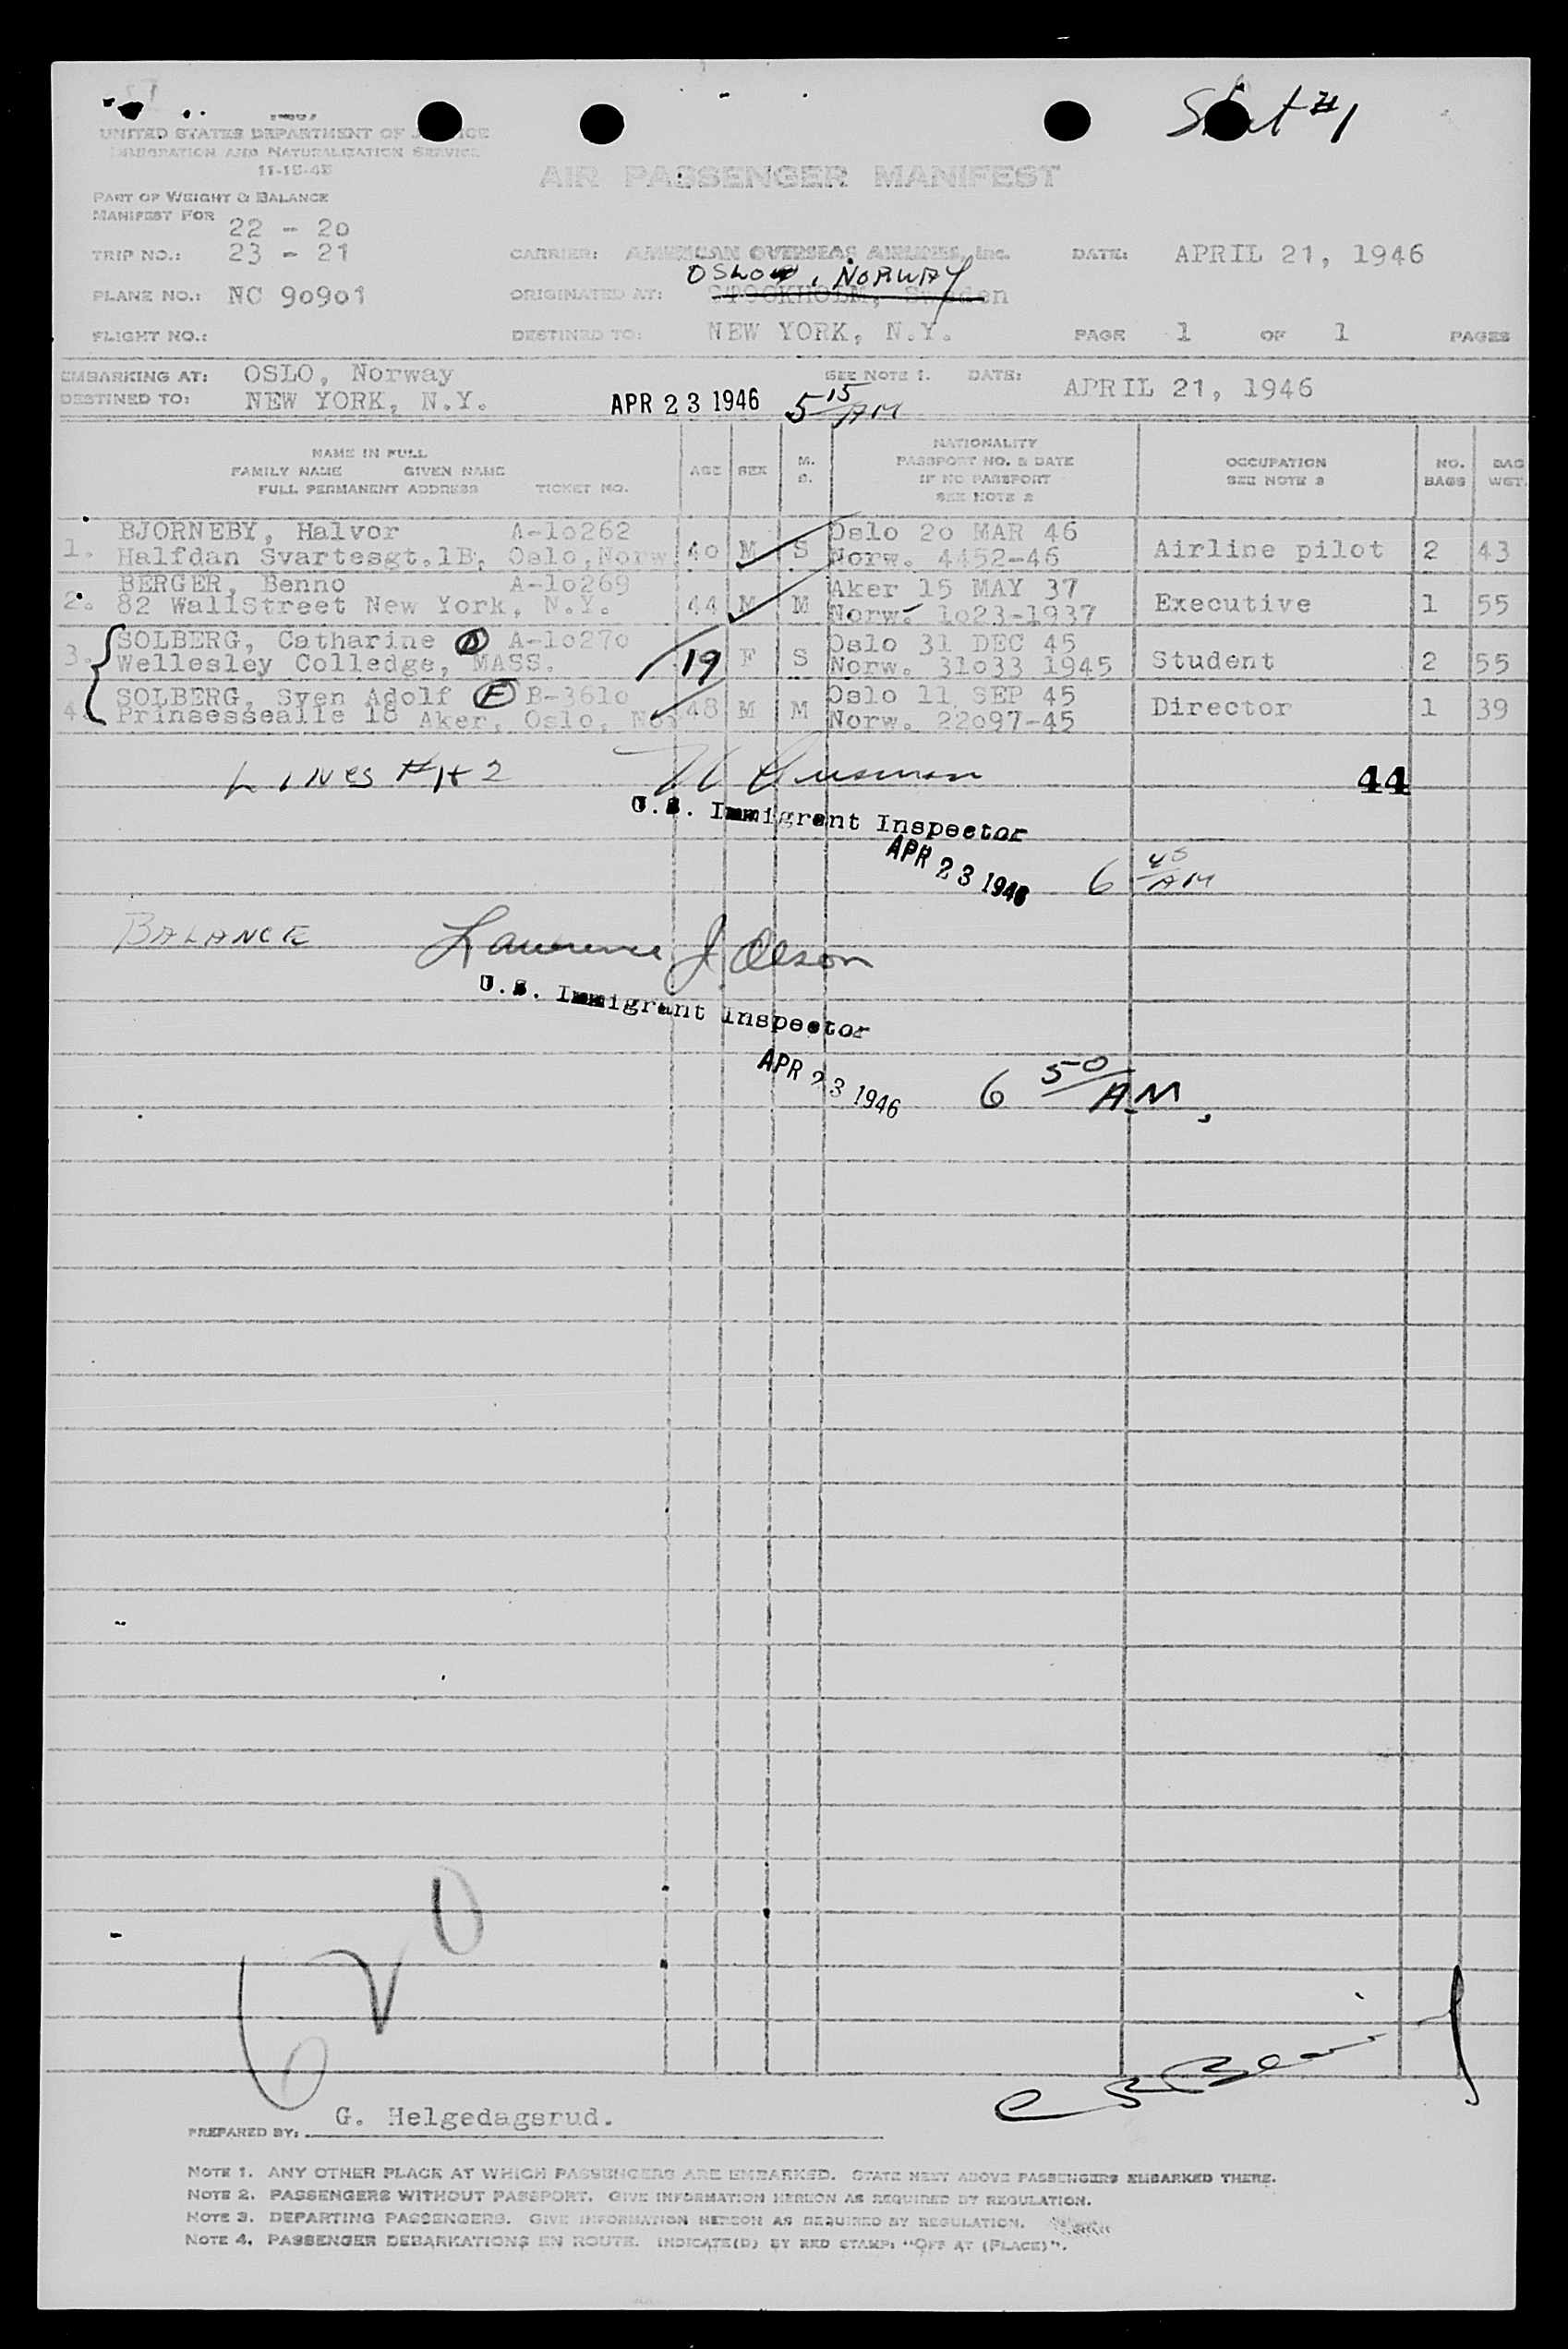 UNITED STATES DEPARTMENT OF JUSTICE
IMMIGRATION AND NATURALIZATION SERVICE
11-15-45
AIR PASSENGER MANIFEST
PART OF WEIGHT & BALANCE
MANIFEST FOR 22 - 20
TRIP NO.: 23 - 21 CARRIER: AMERICAN OVERSEAS AIRLINES, Inc. DATE: APRIL 21, 1946
OSLO, NORWAY
PLANE NO.: NC 90901 ORIGINATED AT: STOCKHOLM, Sweden
FLIGHT NO.: DESTINED TO: NEW YORK, N.Y. PAGE 1 OF 1 PAGES
EMBARKING AT: OSLO, Norway SEE NOTE 1. DATE: APRIL 21, 1946
DESTINED TO: NEW YORK, N.Y. APR 23 1946 5 15 AM
NAME IN FULL
FAMILY NAME GIVEN NAME
FULL PERMANENT ADDRESS TICKET NO. AGE SEX M. S. NATIONALITY PASSPORT NO. & DATE IF NO PASSPORT SEE NOTE 2 OCCUPATION SEE NOTE 3 NO. BAGS BAG WGT.
1. BJORNEBY, Halvor A-10262 40 M S Oslo 20 MAR 46 Airline pilot 2 43
Halfdan Svartesgt.1B, Oslo, Norw Norw. 4452-46
2. BERGER, Benno A-10269 44 M M Aker 15 MAY 37 Executive 1 55
82 WallStreet New York, N.Y. Norw. 1023-1937
3. SOLBERG, Catharine D A-10270 19 F S Oslo 31 DEC 45 Student 2 55
Wellesley Colledge, MASS. Norw. 31033 1945
4. SOLBERG, Sven Adolf F B-3610 48 M M Oslo 11 SEP 45 Director 1 39
Prinsessealle 18 Aker, Oslo, Nor Norw. 22097-45
LINES #1+2 44
U.S. Immigrant Inspector
APR 23 1946 6 45 AM
BALANCE Lawrence J. Olson
U.S. Immigrant Inspector
APR 23 1946 6 50 AM.
PREPARED BY: G. Helgedagsrud.
NOTE 1. ANY OTHER PLACE AT WHICH PASSENGERS ARE EMBARKED. STATE NEXT ABOVE PASSENGERS EMBARKED THERE.
NOTE 2. PASSENGERS WITHOUT PASSPORT. GIVE INFORMATION HEREON AS REQUIRED BY REGULATION.
NOTE 3. DEPARTING PASSENGERS. GIVE INFORMATION HEREON AS REQUIRED BY REGULATION.
NOTE 4. PASSENGER DEBARKATIONS EN ROUTE. INDICATE(D) BY RED STAMP: "OFF AT (PLACE)".